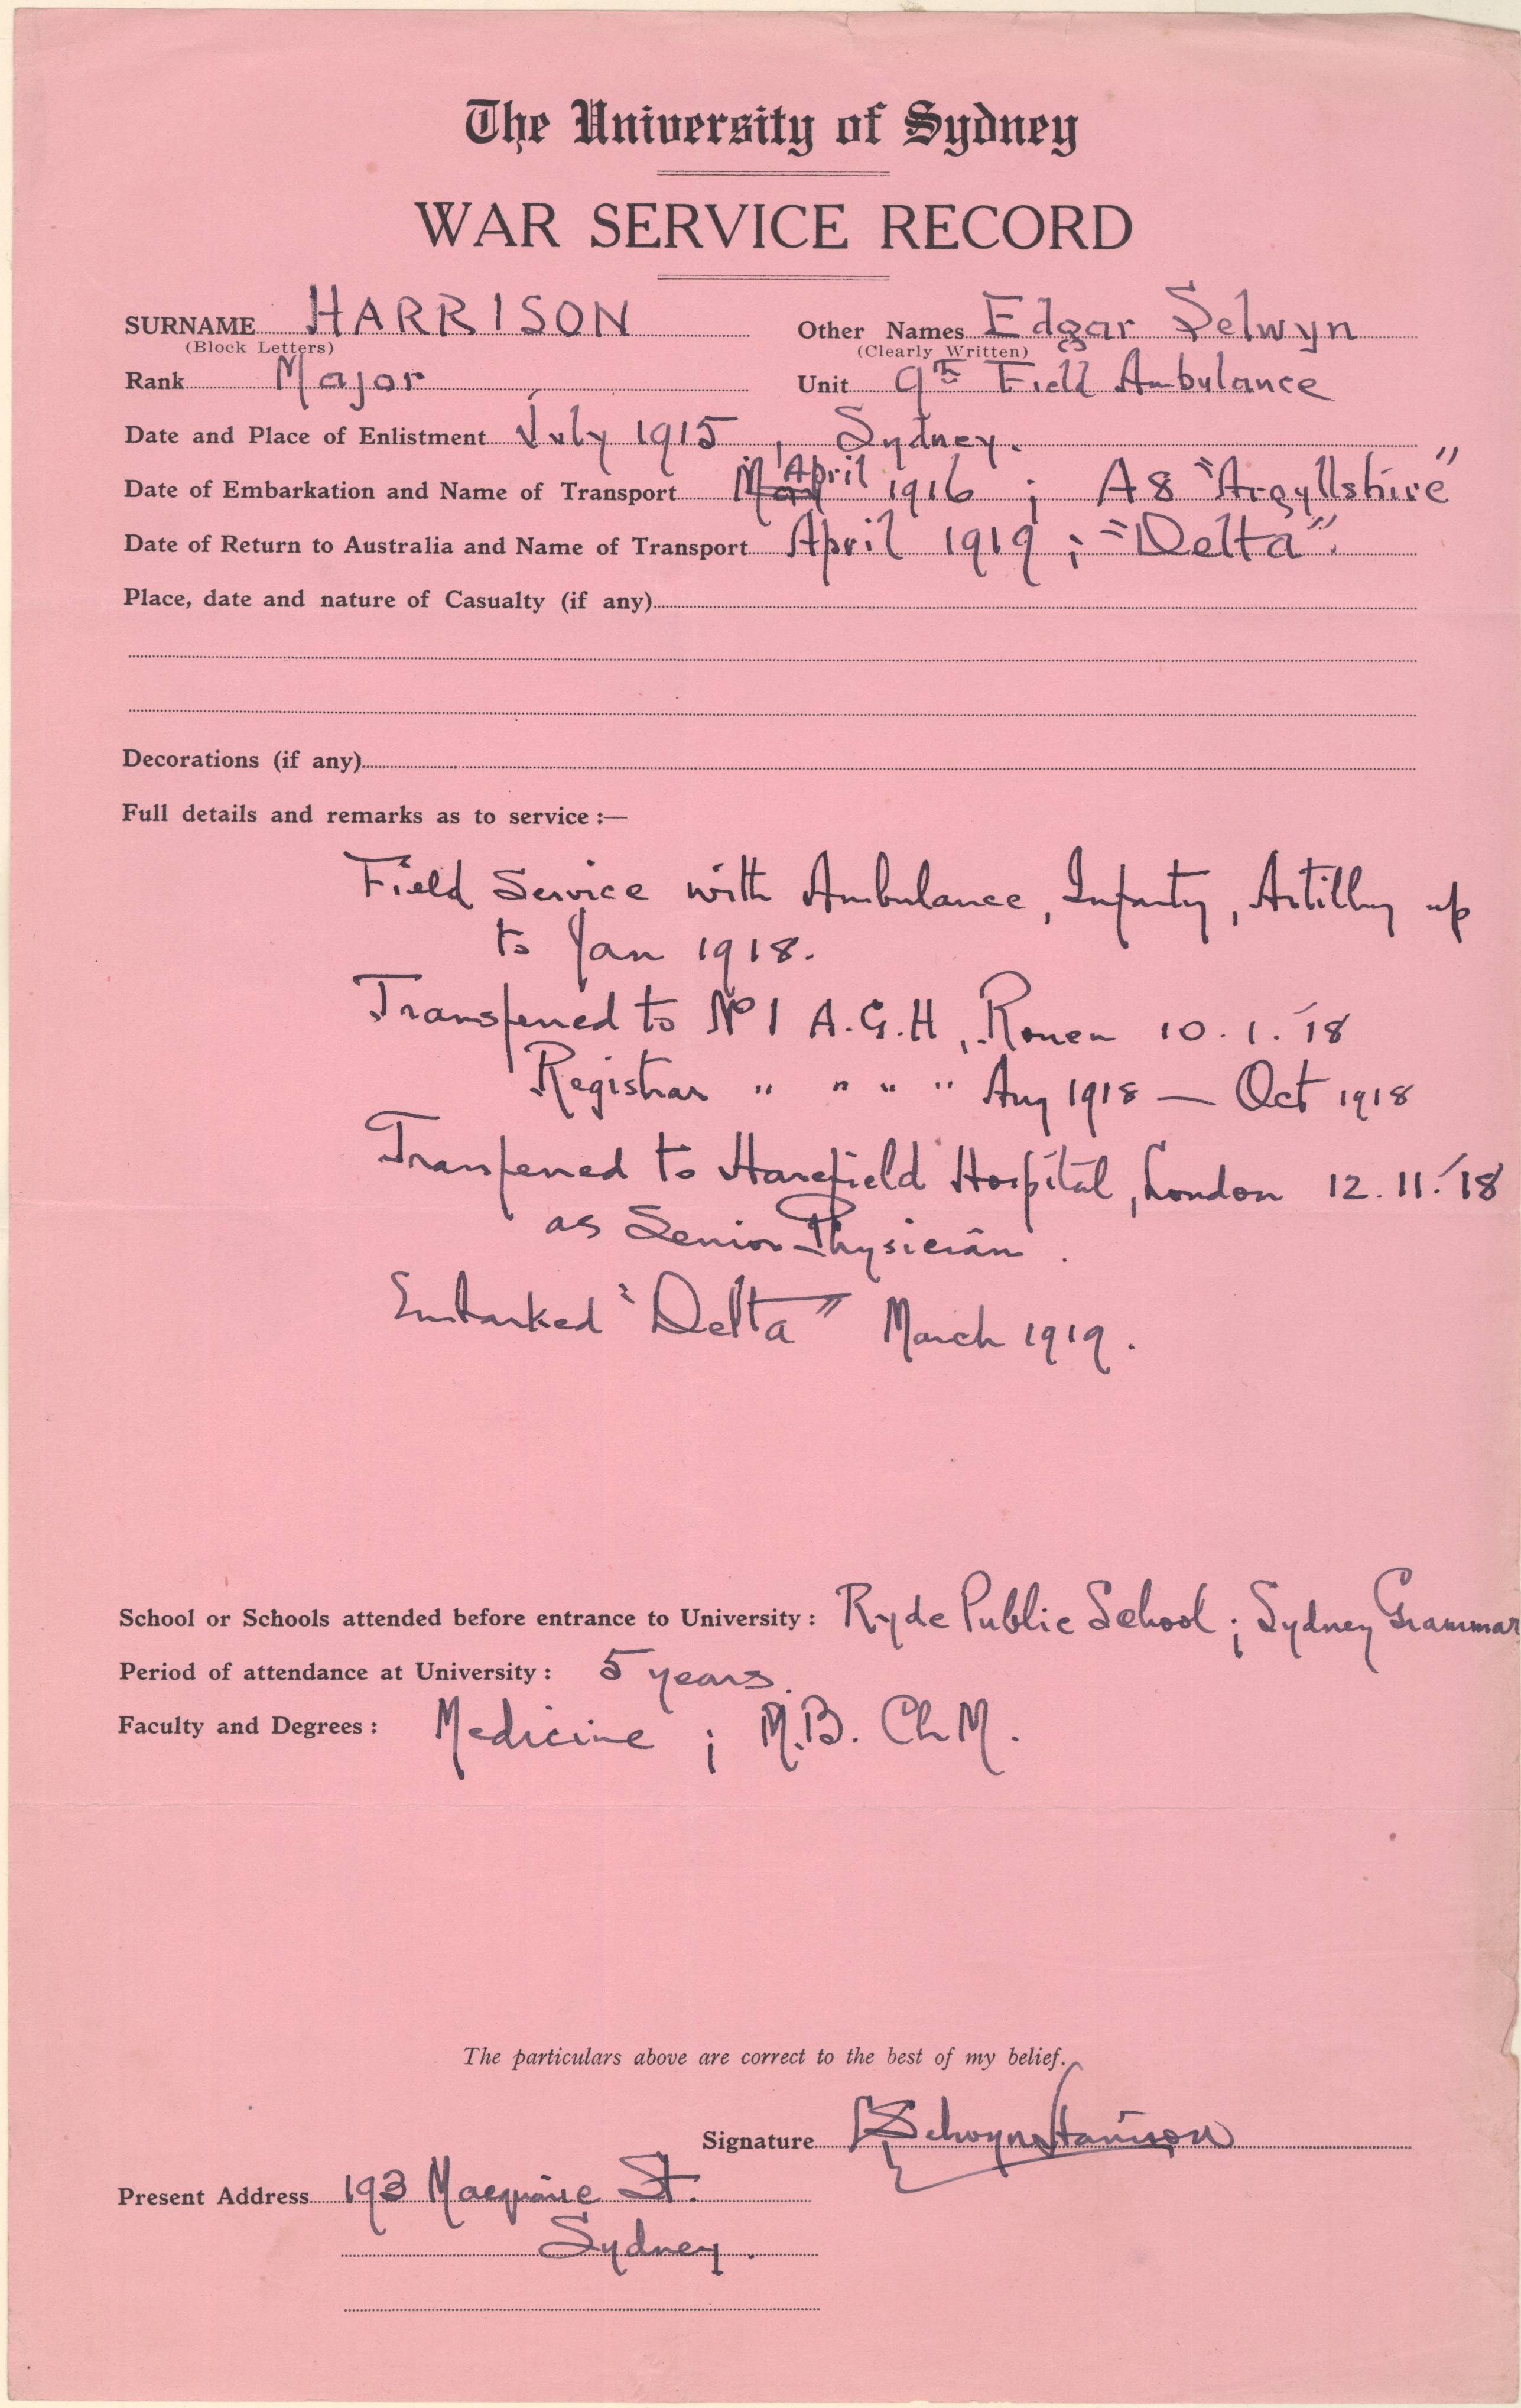 The University of Sydney
WAR SERVICE RECORD
SURNAME HARRISON Other Names Edgar Selwyn
(Block Letters) (Clearly Written)
Rank Major Unit 9th Field Ambulance
Date and Place of Enlistment July 1915, Sydney.
April
Date of Embarkation and Name of Transport May 1916; A8 "Argyllshire"
Date of Return to Australia and Name of Transport April 1919; "Delta".
Place, date and nature of Casualty (if any)
Decorations (if any)
Full details and remarks as to service:—
Field Service with Ambulance, Infantry, Artillery up
to Jan 1918.
Transferred to No 1 A.G.H, Rouen 10.1.'18
Registrar " " " " Aug 1918 — Oct 1918
Transferred to Harefield Hospital, London 12.11.'18
as Senior Physician.
Embarked "Delta" March 1919.
School or Schools attended before entrance to University: Ryde Public School; Sydney Grammar
Period of attendance at University: 5 years.
Faculty and Degrees: Medicine; M.B. Ch M.
The particulars above are correct to the best of my belief.
Signature E Selwyn Harrison
Present Address 193 Macquarie St.
Sydney.